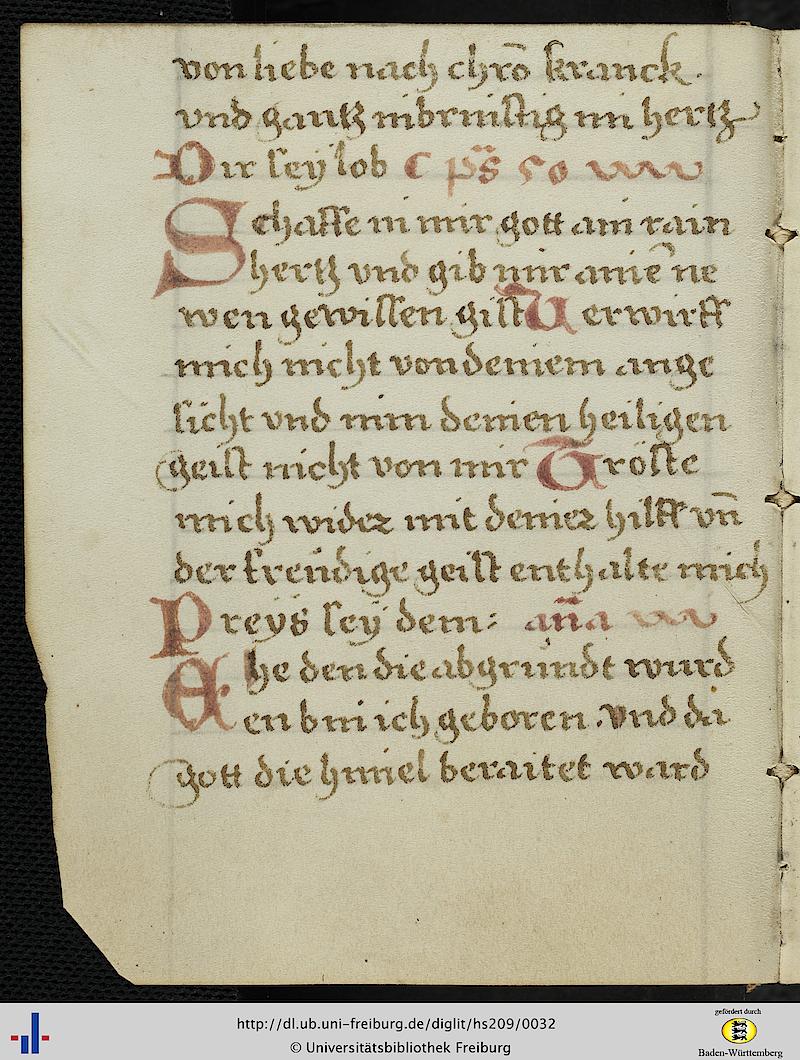 von liebe nach chrō kranck.
vnd gantz inbrinstig im hertz
Dir sey lob C ps̄ 50
Schaffe in mir gott ain rain
hertz vnd gib mir ainē ne
wen gewissen gist Verwirff
mich nicht von deinem ange
sicht vnd nim deinen heiligen
geist nicht von mir Tröste
mich wider mit deiner hilff vn̄
der freüdige geist enthalte mich
Preys sey dem: an̄a
Ehe den die abgrundt wurd
en bin ich geboren. Vnd da
gott die himel beraitet ward
http://dl.ub.uni-freiburg.de/diglit/hs209/0032
© Universitätsbibliothek Freiburg
gefördert durch
Baden-Württemberg